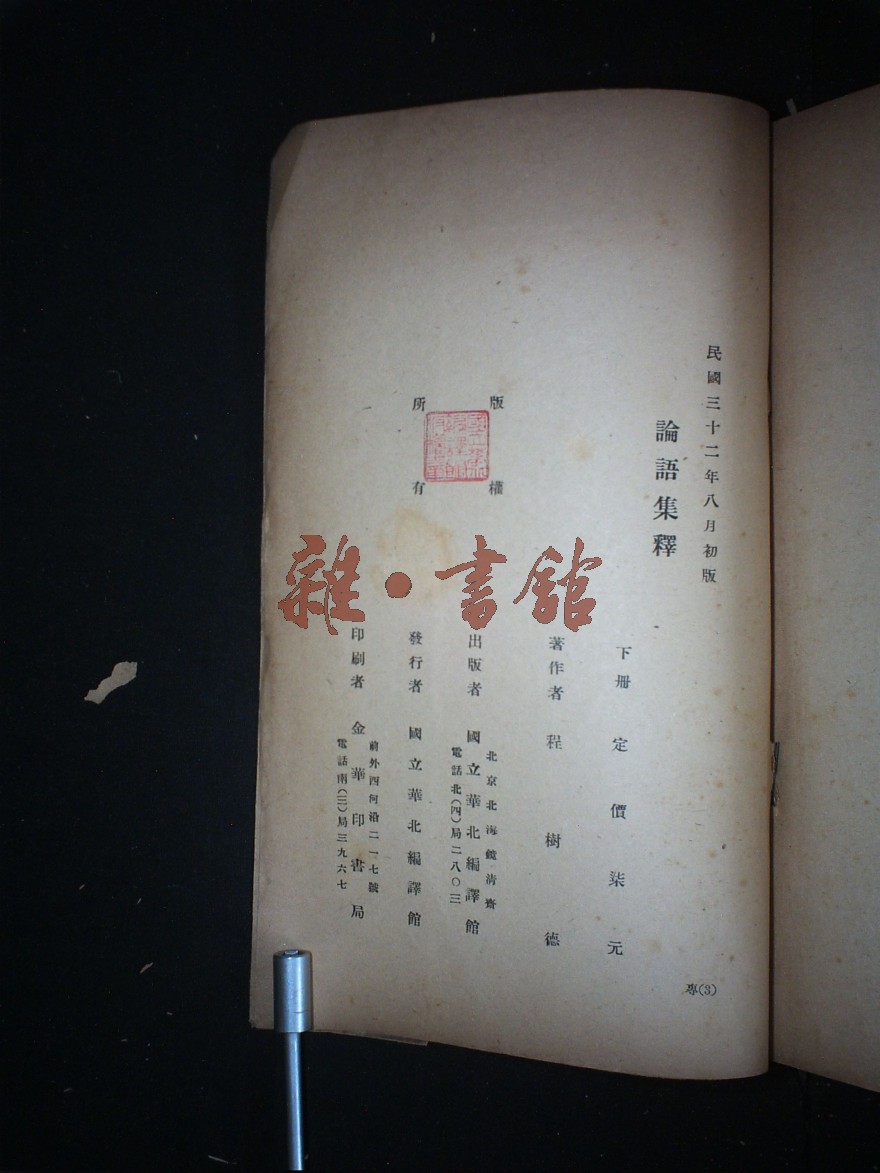 民國三十二年八月初版
論語集釋
下册 定價柒元
著作者 程樹德
北京北海鏡清齋
出版者 國立華北編譯館
電話北(四)局二八〇三
發行者 國立華北編譯館
前外西河沿二一七號
印刷者 金華印書局
電話南(三)局三九六七
版權
所有
專(3)
雜·書館